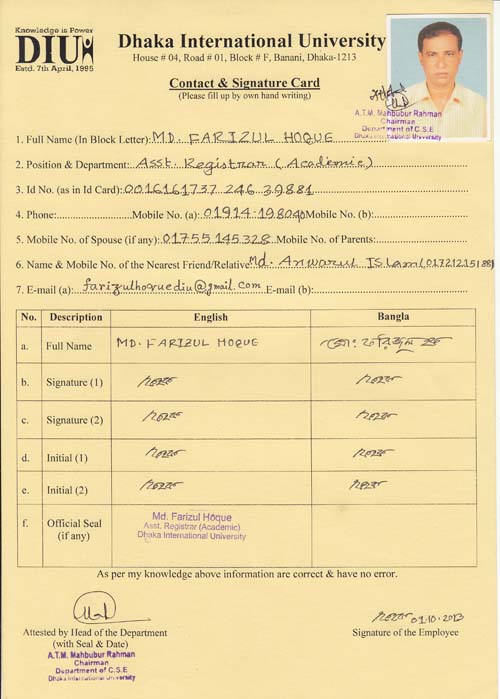 Knowledge is Power
DIU
Estd. 7th April, 1995
Dhaka International University
House # 04, Road # 01, Block # F, Banani, Dhaka-1213
Contact & Signature Card
(Please fill up by own hand writing)
A.T.M. Mahbubur Rahman
Chairman
Department of C.S.E
Dhaka International University
1. Full Name (In Block Letter): MD. FARIZUL HOQUE
2. Position & Department: Asst. Registrar (Academic)
3. Id No. (as in Id Card): 0016161737 246 39881
4. Phone: Mobile No. (a): 01914-198040 Mobile No. (b):
5. Mobile No. of Spouse (if any): 01755 145328 Mobile No. of Parents:
6. Name & Mobile No. of the Nearest Friend/Relative: Md. Anwarul Islam (01721215188)
7. E-mail (a): farizulhoquediu@gmail.com E-mail (b):
No. Description English Bangla
a. Full Name MD. FARIZUL HOQUE মোঃ ফরিজুল হক
b. Signature (1)
c. Signature (2)
d. Initial (1)
e. Initial (2)
f. Official Seal (if any)
Md. Farizul Hoque
Asst. Registrar (Academic)
Dhaka International University
As per my knowledge above information are correct & have no error.
09.10.2013
Attested by Head of the Department
(with Seal & Date)
Signature of the Employee
A.T.M. Mahbubur Rahman
Chairman
Department of C.S.E
Dhaka International University